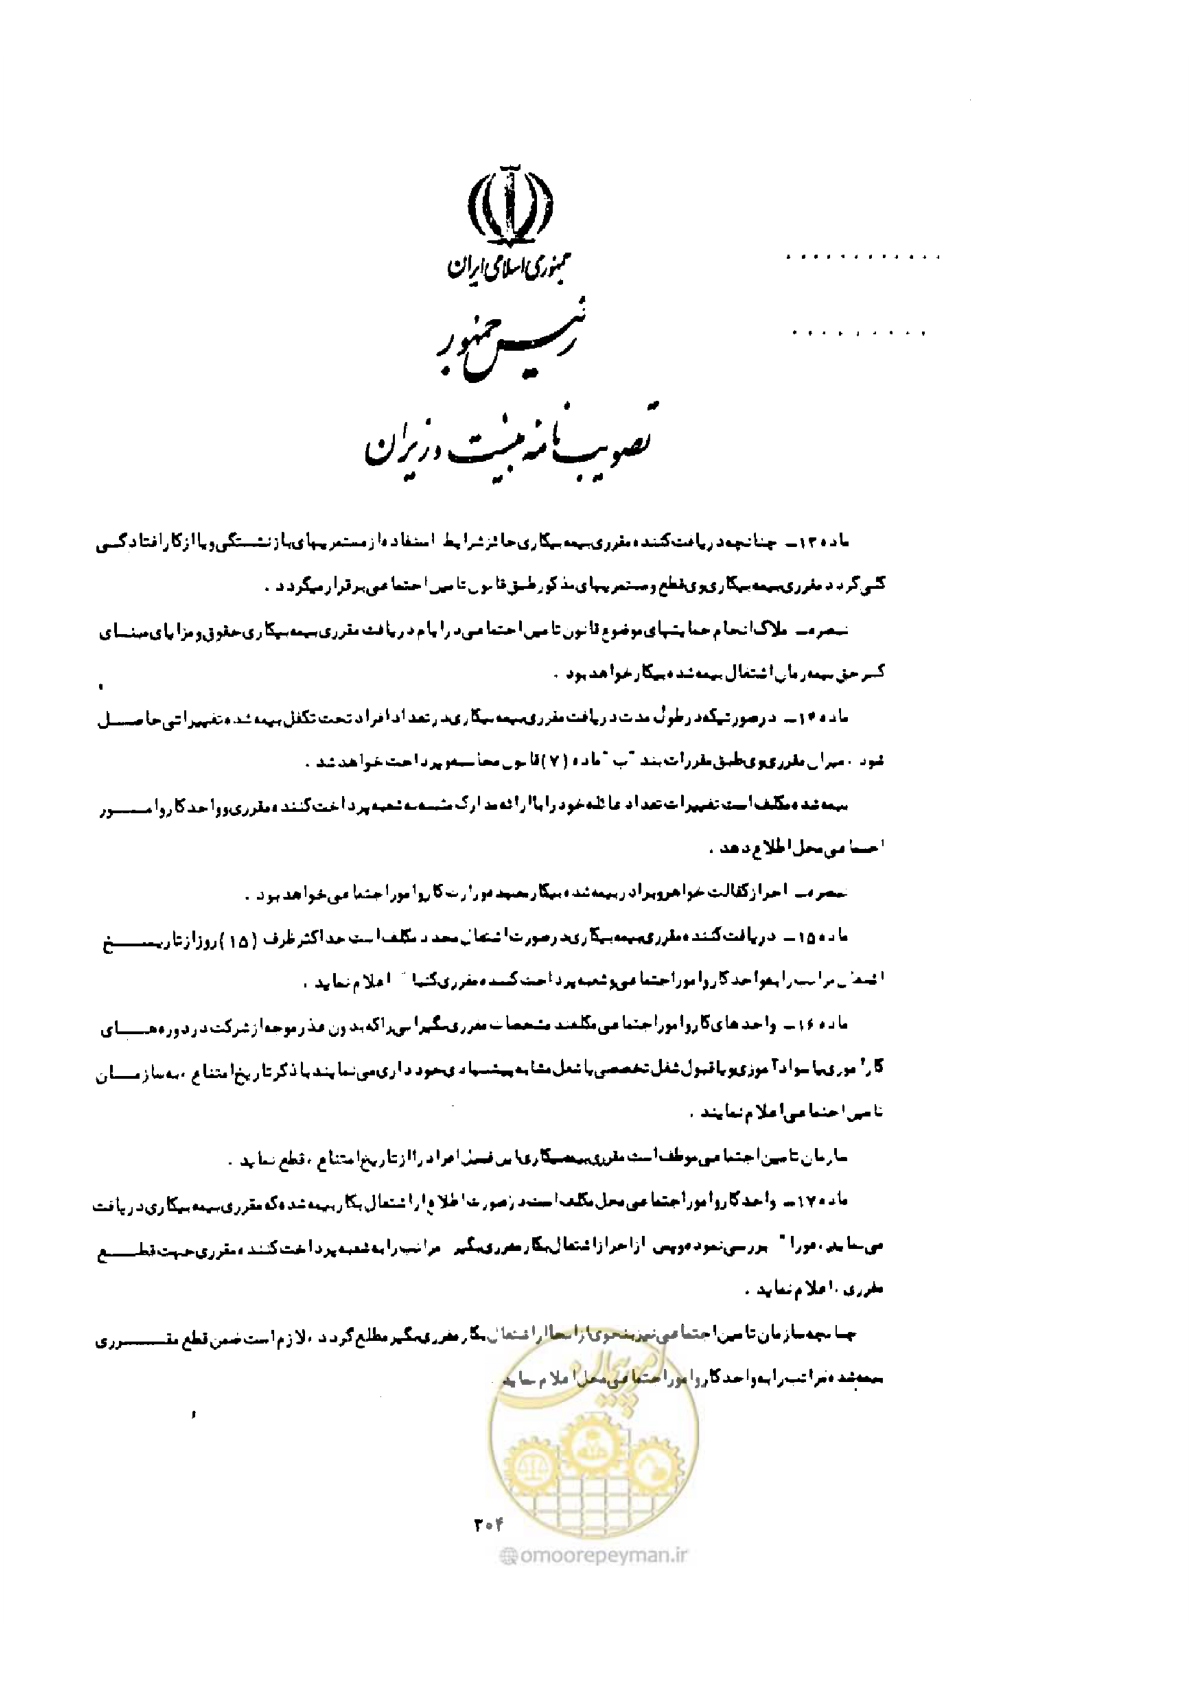 جمهوری اسلامی ایران
رئیس جمهور
تصویب نامه هیئت وزیران
ماده ۱۳ـ چنانچه دریافت کننده مقرری بیمه بیکاری حائز شرایط استفاده از مستمریهای بازنشستگی و یا از کار افتادگی
کلی گردد مقرری بیمه بیکاری وی قطع و مستمریهای مذکور طبق قانون تامین اجتماعی برقرار میگردد .
تبصره ـ ملاک انجام حمایتهای موضوع قانون تامین اجتماعی در ایام دریافت مقرری بیمه بیکاری حقوق و مزایای مبنای
کسر حق بیمه زمان اشتغال بیمه شده بیکار خواهد بود .
ماده ۱۴ـ در صورتیکه در طول مدت دریافت مقرری بیمه بیکاری در تعداد افراد تحت تکفل بیمه شده تغییراتی حاصل
شود ، میزان مقرری وی طبق مقررات بند "ب" ماده (۷) قانون محاسبه و پرداخت خواهد شد .
بیمه شده مکلف است تغییرات تعداد عائله خود را با ارائه مدارک مثبته به شعبه پرداخت کننده مقرری و واحد کار و امور
اجتماعی محل اطلاع دهد .
تبصره ـ احراز کفالت خواهر و برادر بیمه شده بیکار بعهده وزارت کار و امور اجتماعی خواهد بود .
ماده ۱۵ـ دریافت کننده مقرری بیمه بیکاری در صورت اشتغال مجدد مکلف است حداکثر ظرف (۱۵) روز از تاریخ
اشتغال مراتب را به واحد کار و امور اجتماعی و شعبه پرداخت کننده مقرری کتبا" اعلام نماید .
ماده ۱۶ـ واحدهای کار و امور اجتماعی مکلفند مشخصات مقرری بگیرانی را که بدون عذر موجه از شرکت در دوره های
کارآموزی یا سوادآموزی و یا قبول شغل تخصصی یا شغل مشابه پیشنهادی خودداری می نمایند با ذکر تاریخ امتناع ، به سازمان
تامین اجتماعی اعلام نمایند .
سازمان تامین اجتماعی موظف است مقرری بیمه بیکاری این قبیل افراد را از تاریخ امتناع ، قطع نماید .
ماده ۱۷ـ واحد کار و امور اجتماعی محل مکلف است در صورت اطلاع از اشتغال بکار بیمه شده که مقرری بیمه بیکاری دریافت
می نماید ، فورا" بررسی نموده و پس از احراز اشتغال بکار مقرری بگیر مراتب را به شعبه پرداخت کننده مقرری جهت قطع
مقرری ، اعلام نماید .
چنانچه سازمان تامین اجتماعی نیز بنحوی از انحاء از اشتغال بکار مقرری بگیر مطلع گردد ، لازم است ضمن قطع مقرری
بیمه شده مراتب را به واحد کار و امور اجتماعی محل اعلام نماید
امور پیمان
۳۰۴
@omoorepeyman.ir